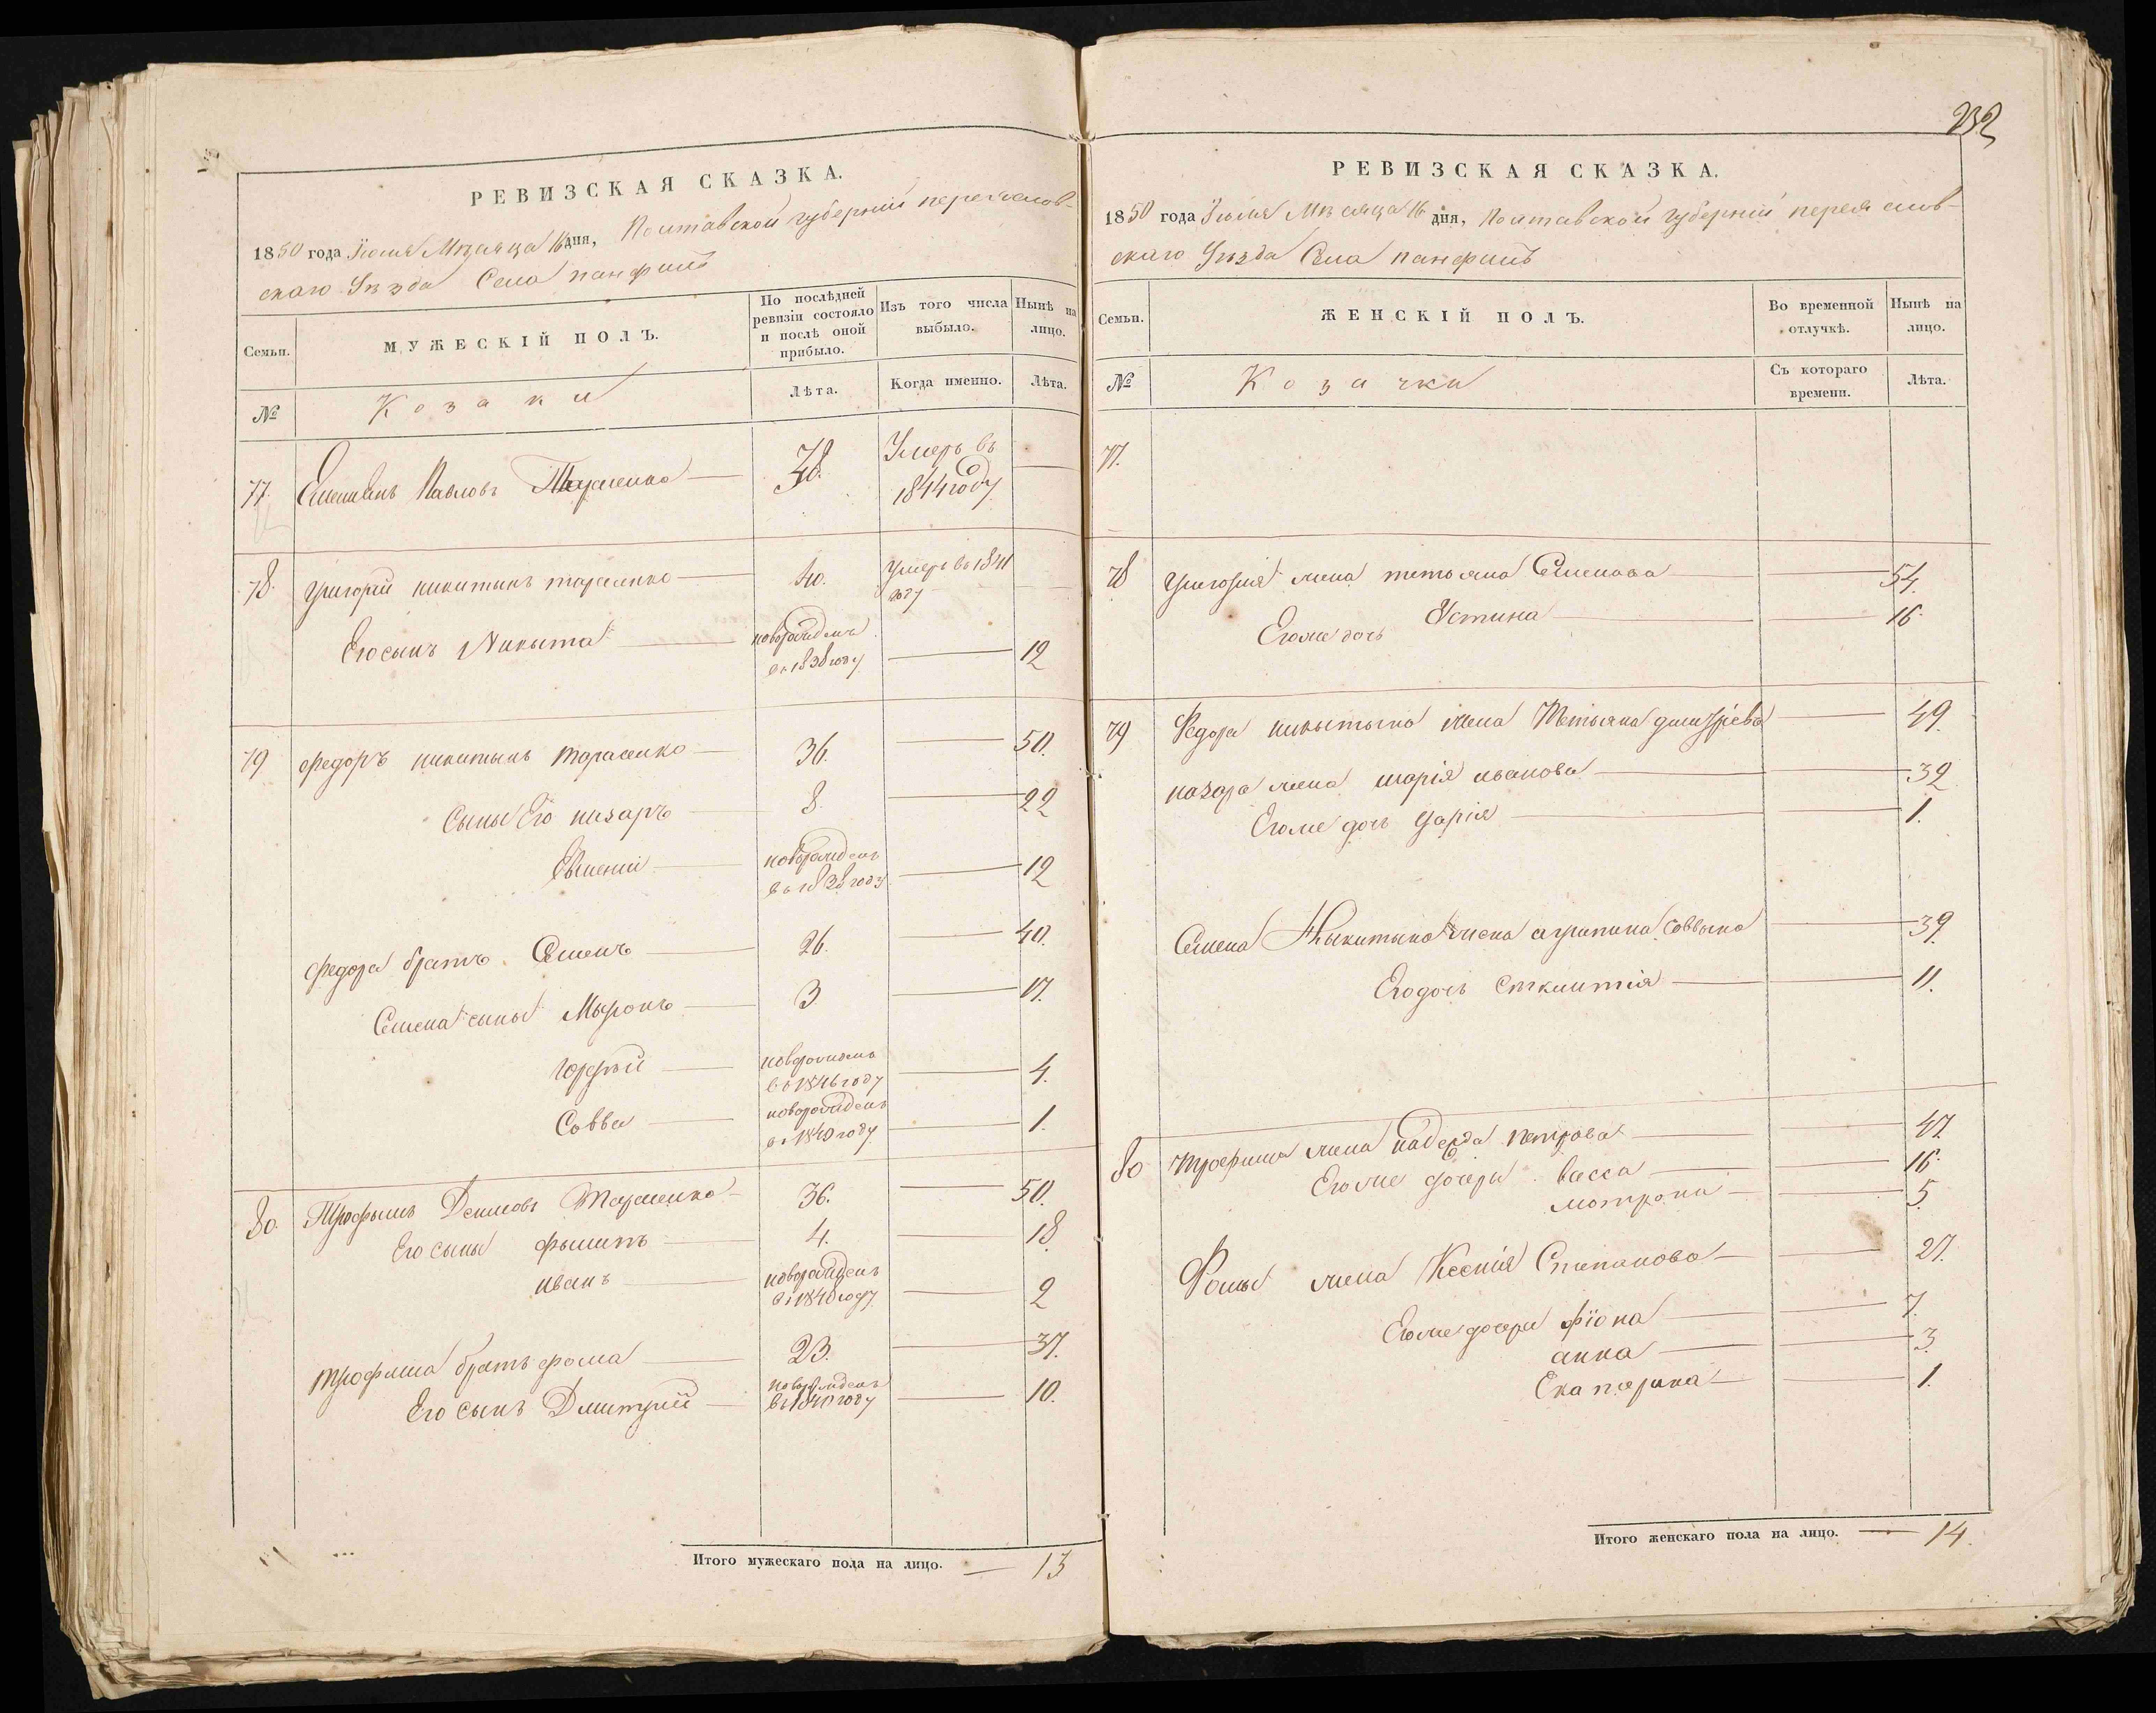 РЕВИЗСКАЯ СКАЗКА.
1850 года Июля Мѣсяца 16 дня, Полтавской губерніи переяслов-
скаго Уѣзда Села панфилъ
Семьи.
МУЖЕСКІЙ ПОЛЪ.
По послѣдней ревизіи состояло и послѣ оной прибыло.
Изъ того числа выбыло.
Нынѣ на лицо.
№
Козаки
Лѣта.
Когда именно.
Лѣта.
77. Павловъ Тарасенко — 38. Умеръ въ —
1844 году
78. григорій никитинъ тарасенко — 40. Умеръ в 1841 —
году
Его сынъ Никита — новорожденъ
в 1838 году — 12
79 федоръ никитынъ тарасенко — 36. — 50.
Сыны Его назаръ — 8. — 22
Евмений — новорожденъ
в 1838 году — 12
федора братъ Семенъ — 26. — 40.
Семена сыны Мыронъ — 3 — 17.
— новорожденъ
в 1846 году — 4.
Совва — новорожденъ
в 1849 году — 1.
80. Трофымъ Денисовъ Тарасенко — 36. — 50.
Его сыны — 4. — 18.
иванъ — новорожденъ
в 1848 году — 2
трофима братъ фома — 23. — 37.
Его сынъ Дмитрій — новорожденъ
в 1840 году — 10.
Итого мужескаго пола на лицо. — 13
232
РЕВИЗСКАЯ СКАЗКА.
1850 года Июля Мѣсяца 16 дня, Полтавской губерніи переяслов-
скаго Уѣзда Села панфилъ
Семьи.
ЖЕНСКІЙ ПОЛЪ.
Во временной отлучкѣ.
Нынѣ на лицо.
№
Козачки
Съ котораго времени.
Лѣта.
77.
78 григорія жена тетьяна Семенова — 54.
Егоже дочь Устина — 16.
79 Федора никытына жена Тетьяна дмитріева — 49.
назара жена марія иванова — 32
Егоже дочь дарія — 1.
Семена Ныкитына жена агрипина Соввына — 39.
Его дочь — 11.
80 трофима жена надежда петрова — 47.
Егоже дочери васса — 16.
мотрона — 5.
Фомы жена Ксенія Степанова — 27.
Егоже дочери фіона — 7.
анна — 3.
Екатерина — 1.
Итого женскаго пола на лицо. — 14.